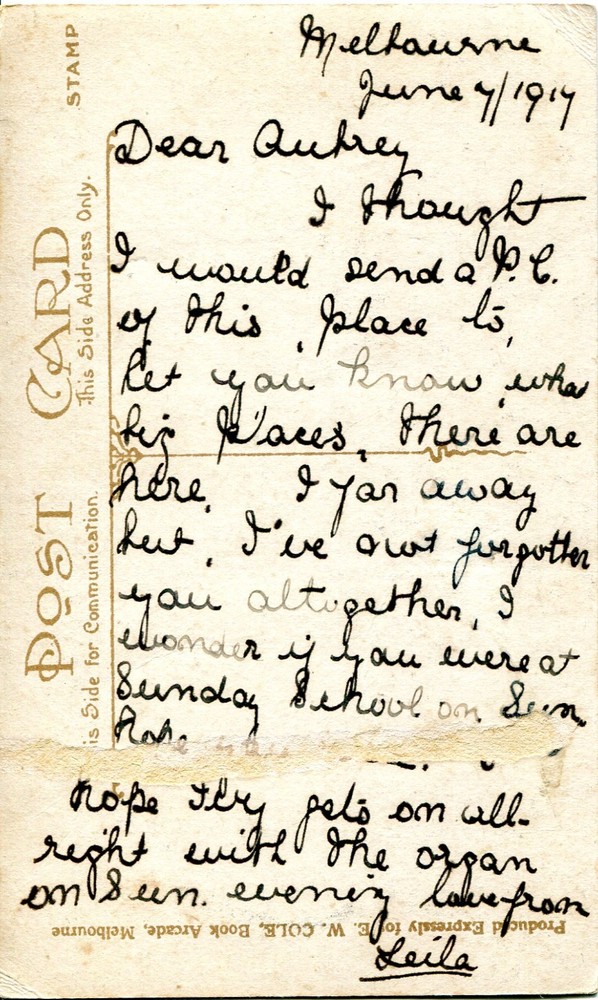 Melbourne
June 7/1917
Dear Aubrey
I thought
I would send a P.C.
of this place to,
let you know what
big places, there are
here. I far away
but, I've not forgotten
you altogether, I
wonder if you were at
Sunday School on Sun.
hope
hope Ivy gets on all-
right with the organ
on Sun. evening love from
Leila
POST CARD
STAMP
This Side Address Only.
is Side for Communication.
Produced Expressly for E. W. COLE, Book Arcade, Melbourne